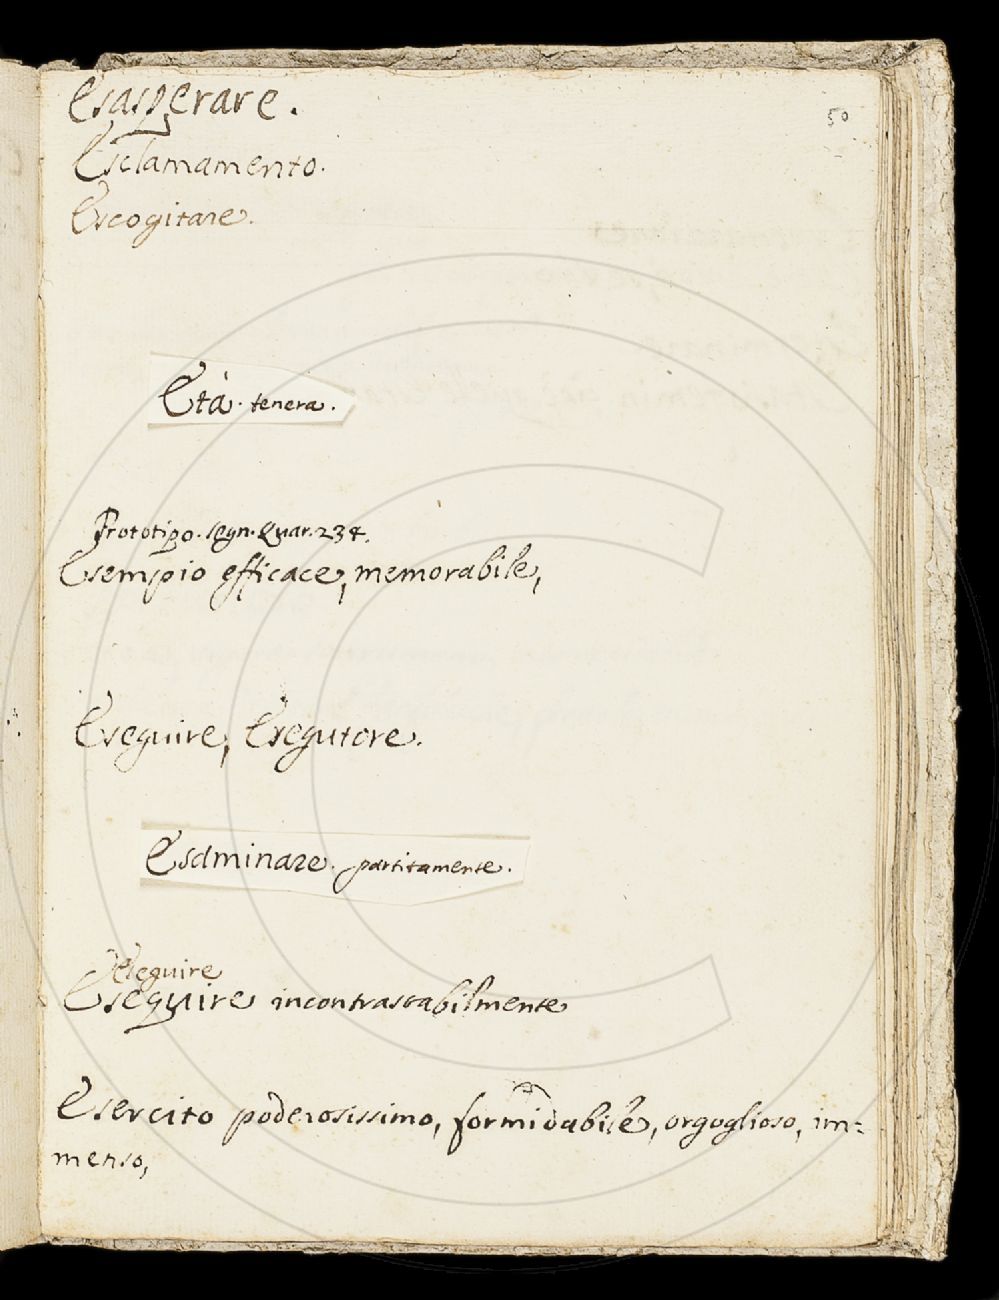 50
Esasperare.
Esclamamento.
Escogitare.
Età tenera.
Prototipo. segn. Quar. 234.
Esempio efficace, memorabile,
Eseguire, Esegutore.
Esaminare. partitamente.
eseguire
Eseguire incontrastabilmente
Esercito poderosissimo, formidabile, orgoglioso, im=
menso,